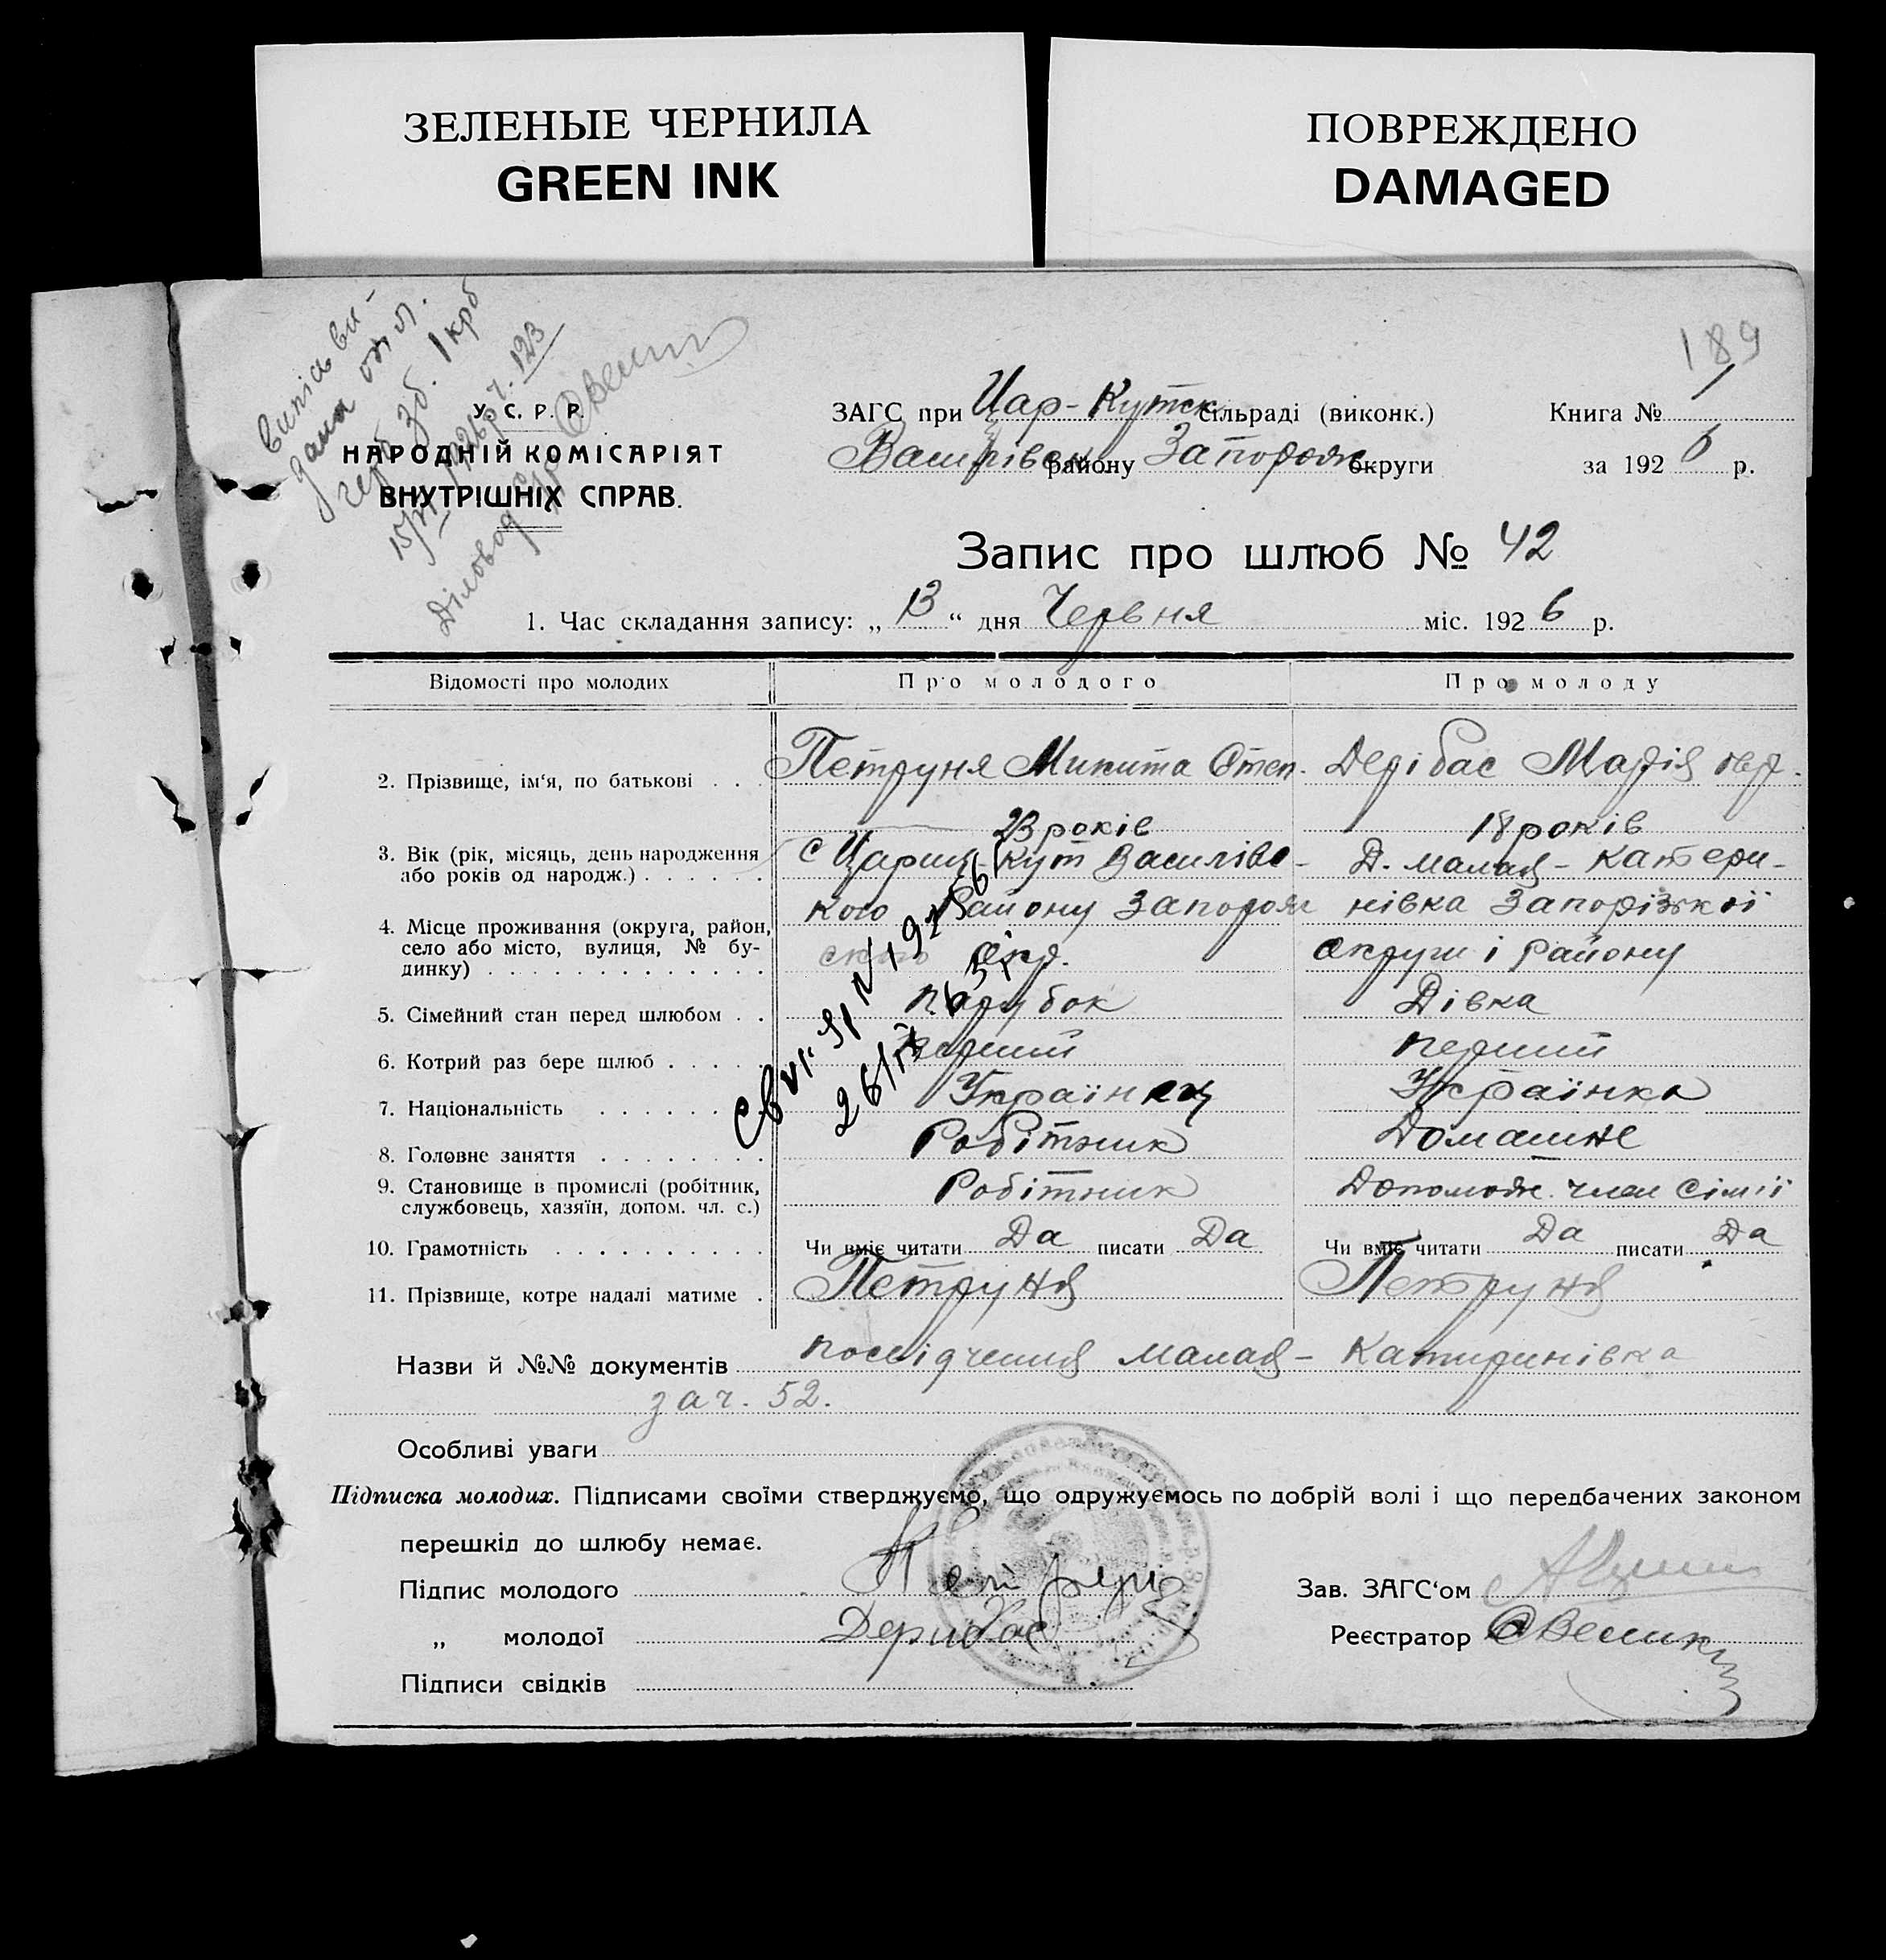 ЗЕЛЕНЫЕ ЧЕРНИЛА
GREEN INK
ПОВРЕЖДЕНО
DAMAGED
189
Випись ви-
дана
герб зб. 1 крб
15/VI 1926 р. ч. 123
Діловод
У. С. Р. Р.
НАРОДНІЙ КОМІСАРІЯТ
ВНУТРІШНІХ СПРАВ.
ЗАГС при Цар-Кутск сільраді (виконк.) Книга № 1
Василівськ району Запорож округи за 1926 р.
Запис про шлюб № 42
1. Час складання запису: „ 13 “ дня Червня міс. 1926 р.
Відомості про молодих Про молодого Про молоду
2. Прізвище, ім‘я, по батькові . . . Петруня Микита Степ. Дерібас Марія
23 років 18 років
3. Вік (рік, місяць, день народження
або років од народж.) . . . . . .
с Царицــ-Кут Василівс- Д. Малая-Катери-
кого Району Запорож нівка Запорізької
4. Місце проживання (округа, район,
село або місто, вулиця, № бу-
динку) . . . . . . . . . . . . .
окр. округи і Району
5. Сімейний стан перед шлюбом . . Парубок Дівка
6. Котрий раз бере шлюб . . . . . перший перший
7. Національність . . . . . . . Українец Українка
8. Головне заняття . . . . . . . Робітник Домашнє
9. Становище в промислі (робітник,
службовець, хазяїн, допом. чл. с.)
Робітник Допомож. член сімії
10. Грамотність . . . . . . . . . . Чи вміє читати Да писати Да Чи вміє читати Да писати Да
11. Прізвище, котре надалі матиме . Петруня Петруня
26/IX
Назви й №№ документів посвідчення Малая-Катиринівка
за ч. 52.
Особливі уваги
Підписка молодих. Підписами своїми стверджуємо, що одружуємось по добрій волі і що передбачених законом
перешкід до шлюбу немає.
Підпис молодого
Зав. ЗАГС‘ом
„ молодої Дерибас
Реєстратор
Підписи свідків